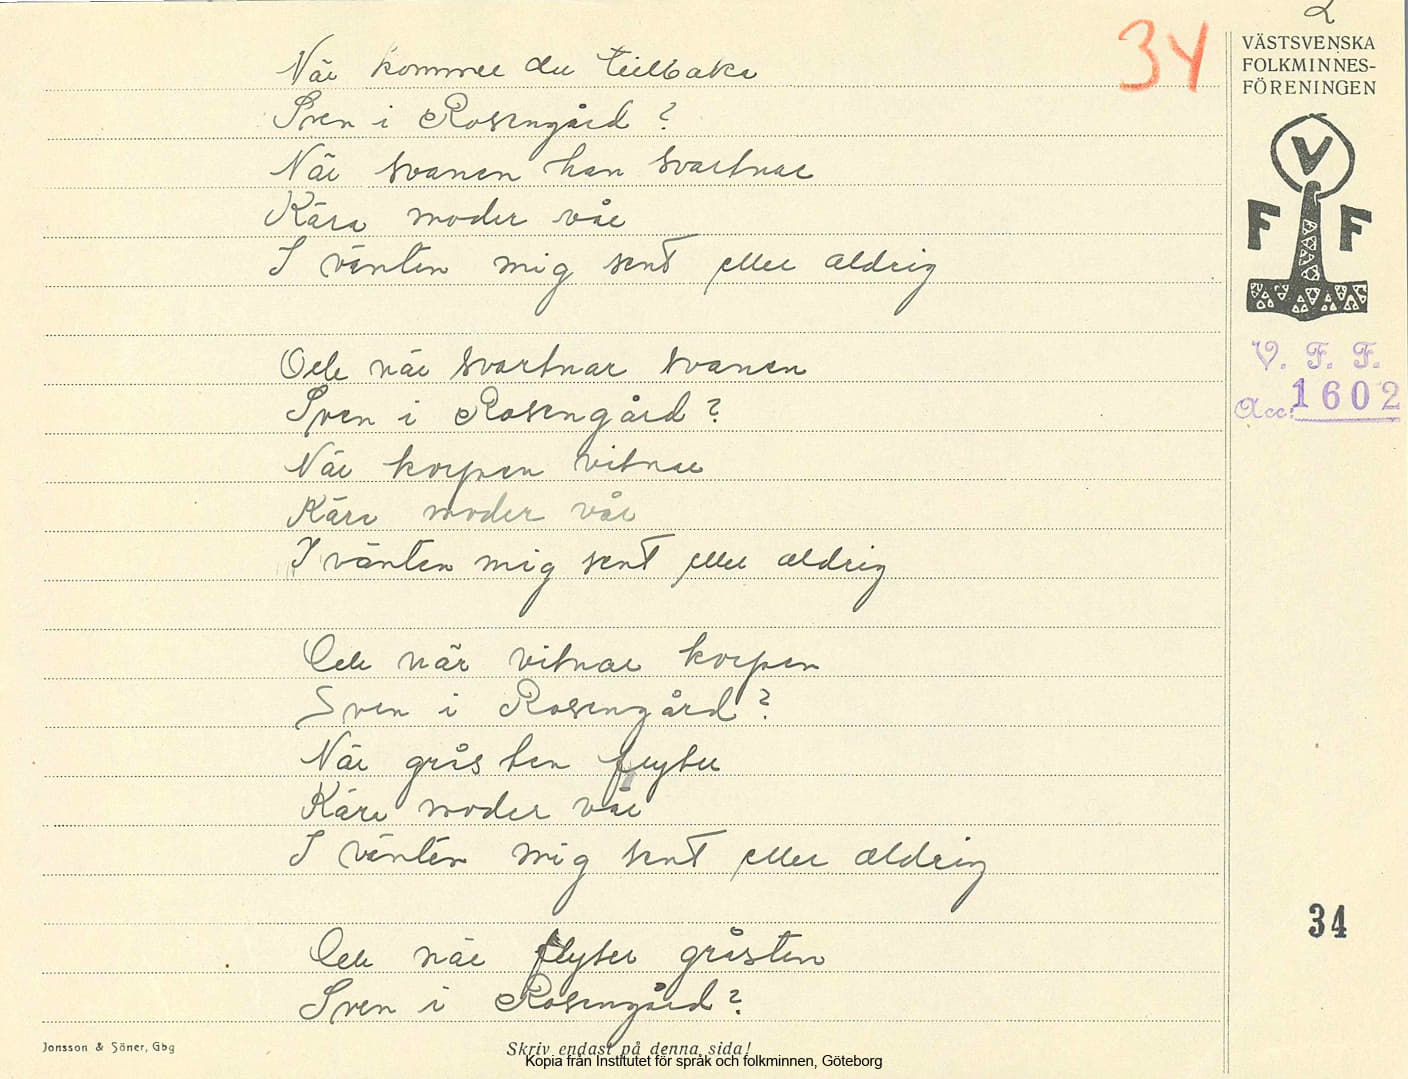 2
34
VÄSTSVENSKA
FOLKMINNES-
FÖRENINGEN
V
F F
V. F. F.
Acc: 1602
När kommer du tillbaka
Sven i Rosengård?
När svanen han svartnar
Kära moder vår
I vänten mig sent eller aldrig
Och när svartnar svanen
Sven i Rosengård?
När korpen vitnar
Kära moder vår
I vänten mig sent eller aldrig
Och när vitnar korpen
Sven i Rosengård?
När gråsten flyter
Kära moder vår
I vänten mig sent eller aldrig
Och när flyter gråsten
Sven i Rosengård?
34
Jonsson & Söner, Gbg
Skriv endast på denna sida!
Kopia från Institutet för språk och folkminnen, Göteborg